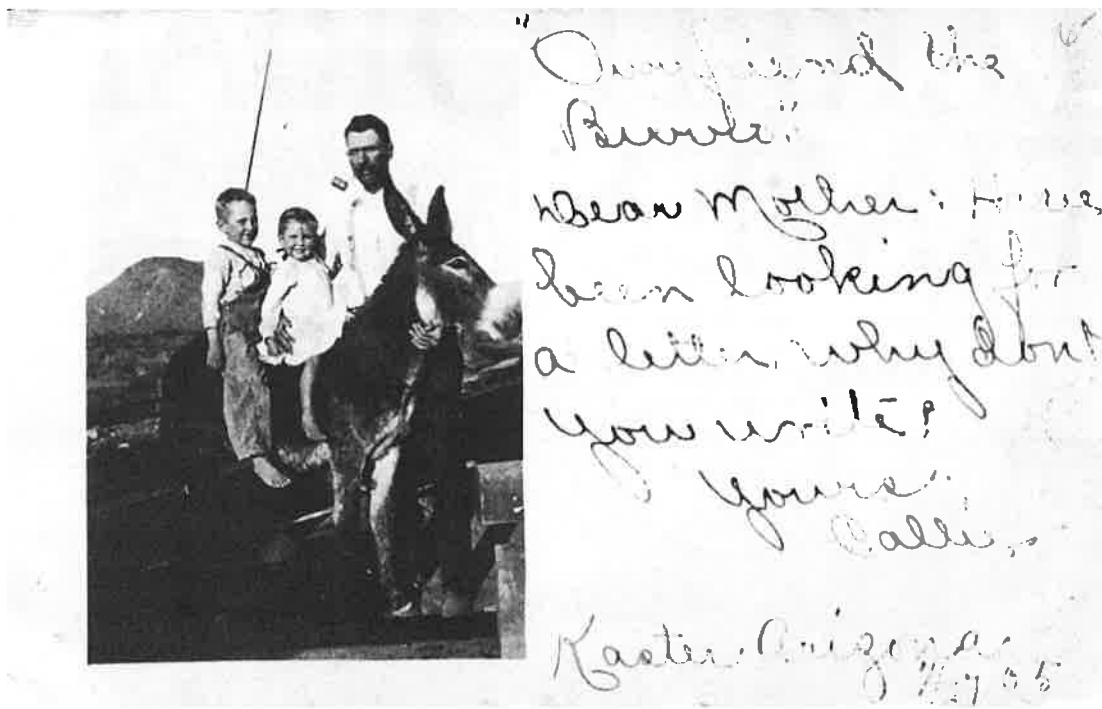 "Our friend the
Burro"
Dear Mother: Have
been looking for
a letter, why dont
you write?
Yours,
Callie
Arizona